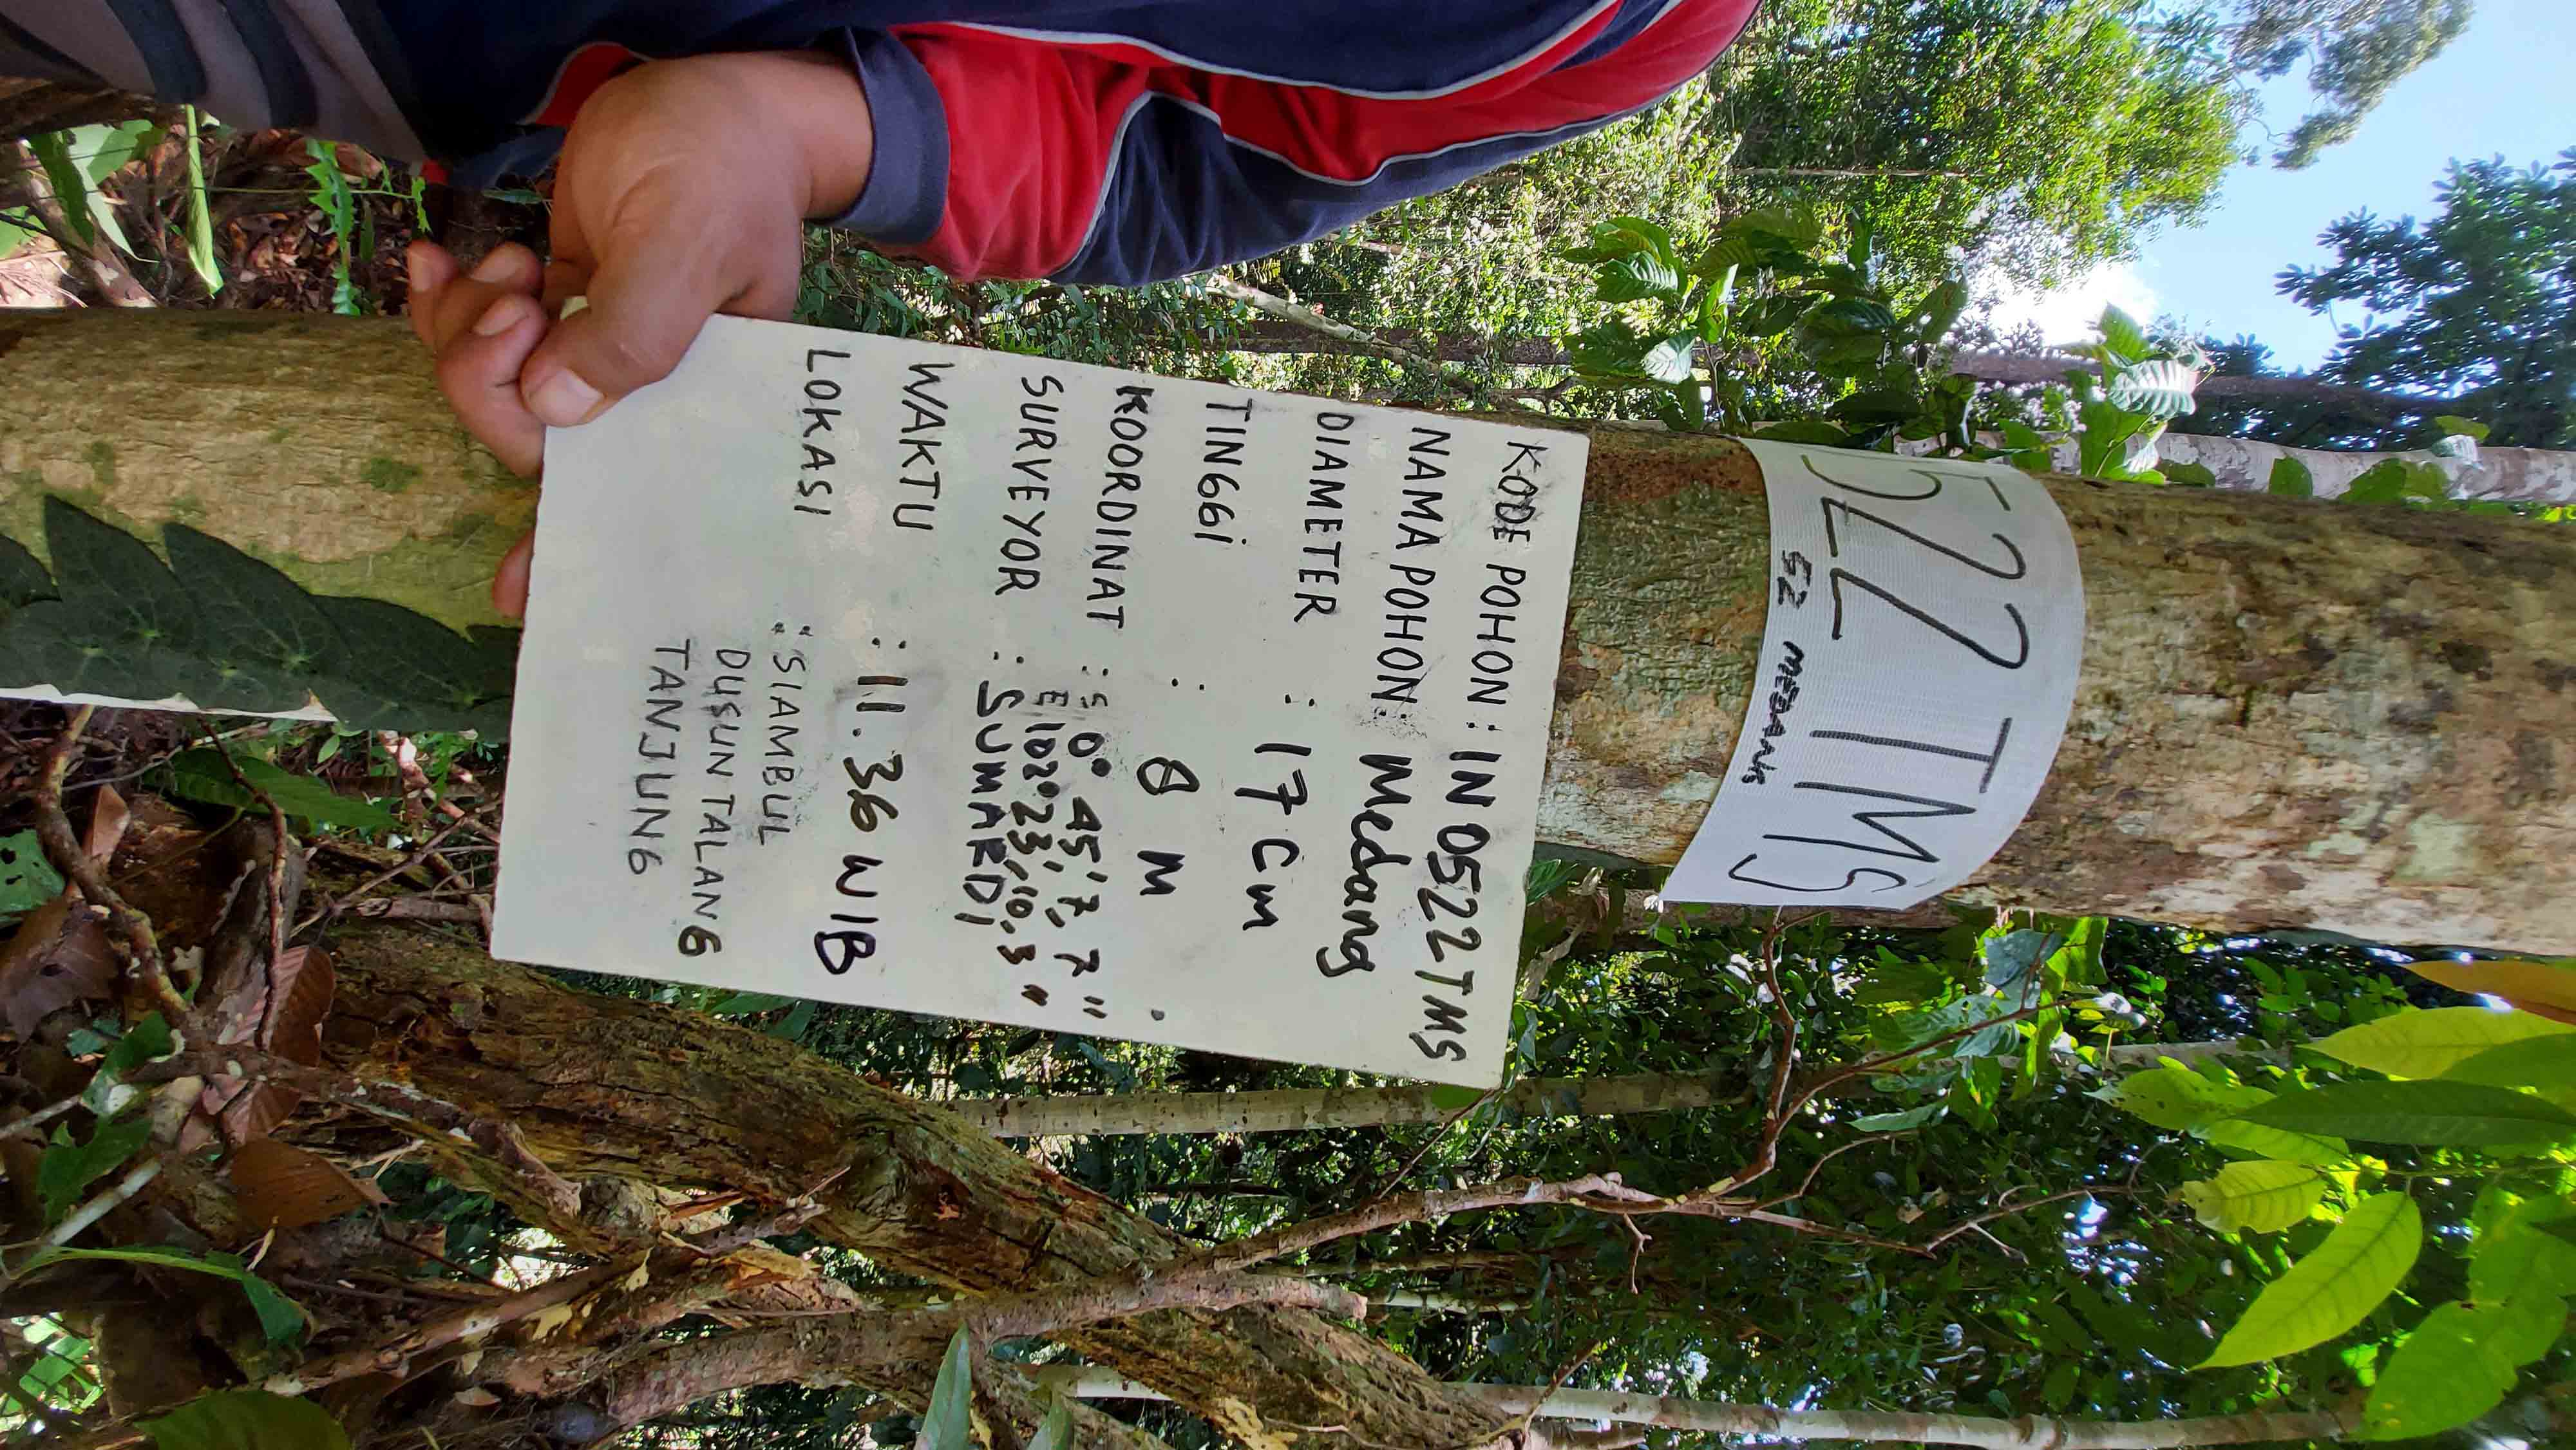 522 TMS
52 MEDANG
KODE POHON : IN 0522 TMS
NAMA POHON : Medang
DIAMETER : 17 Cm
TINGGi : 8 M
KOORDINAT : S 0° 45' 7, 7"
E 102° 23, 10, 3"
SURVEYOR : SUMARDi
WAKTU : 11.36 WIB
LOKASI : SIAMBUL
DUSUN TALANG
TANJUNG